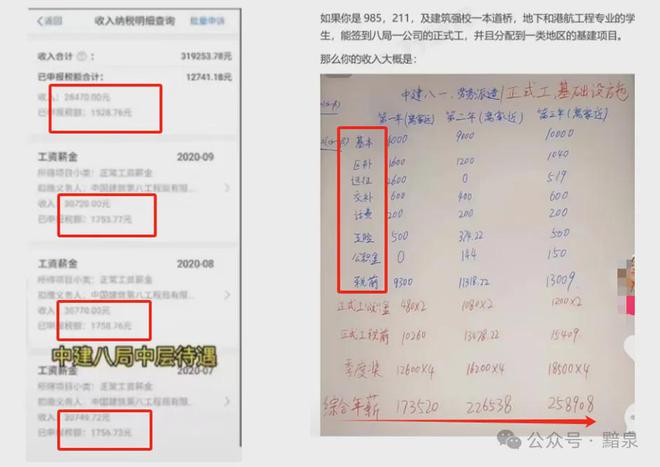 <返回
收入纳税明细查询
批量申诉
收入合计
319253.78元
已申报税额合计：
12741.18元
收入：28470.00元
已申报税额：1528.76元
工资薪金
2020-09
所得项目小类：正常工资薪金
扣缴义务人：中国建筑第八工程局有限...
收入：30720.00元
已申报税额：1753.77元
工资薪金
2020-08
所得项目小类：正常工资薪金
扣缴义务人：中国建筑第八工程局有限...
收入：30770.00元
已申报税额：1758.76元
中建八局中层待遇
工资薪金
2020-07
所得项目小类：正常工资薪金
扣缴义务人：中国建筑第八工程局有限...
收入：30749.72元
已申报税额：1756.73元
如果你是 985，211，及建筑强校一本道桥，地下和港航工程专业的学
生，能签到八局一公司的正式工，并且分配到一类地区的基建项目。
那么你的收入大概是：
中建八一. 劳务派遣/正式工,基础设施
第一年(离家远) 第二年(离家近) 第三年(离家近)
基本 4000 9000 10000
区补 1600 1200 1040
远征 2600 0 519
交补 600 400 600
话费 200 200 200
五险 500 374.22 500
公积金 0 144 150
税前 9300 11318.22 13009
正式工公积金 480×2 1080×2 1200×2
正式工税前 10260 13478.22 15409
季度奖 12600×4 16200×4 18500×4
综合年薪 173520 226538 258908
公众号·黯泉